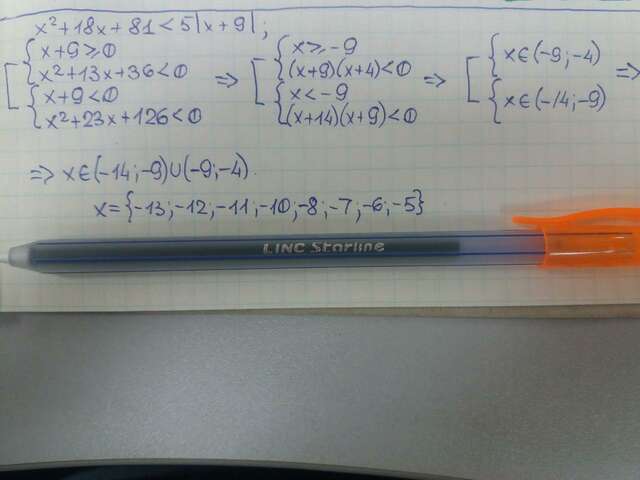 x²+18x+81<5|x+9|;
[ { x+9⩾0 x²+13x+36<0 { x+9<0 x²+23x+126<0 => [ { x⩾-9 (x+9)(x+4)<0 { x<-9 (x+14)(x+9)<0 => [ { x∈(-9;-4) { x∈(-14;-9) =>
=> x∈(-14;-9)∪(-9;-4).
x={-13;-12;-11;-10;-8;-7;-6;-5}
LINC Starline